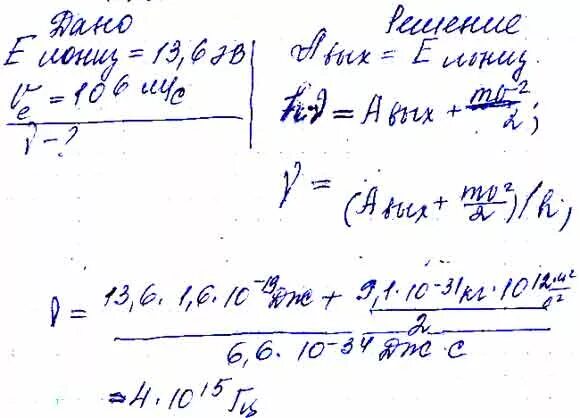 Дано
E иониз = 13,6 эВ
v_e = 10^6 м/с
ν - ?
Решение
A вых = E иониз.
hν = A вых + mv²/2;
ν = (A вых + mv²/2)/h;
ν = (13,6 · 1,6 · 10^-19 Дж + 9,1 · 10^-31 кг · 10^12 м²/с² / 2) / (6,6 · 10^-34 Дж · с)
= 4 · 10^15 Гц